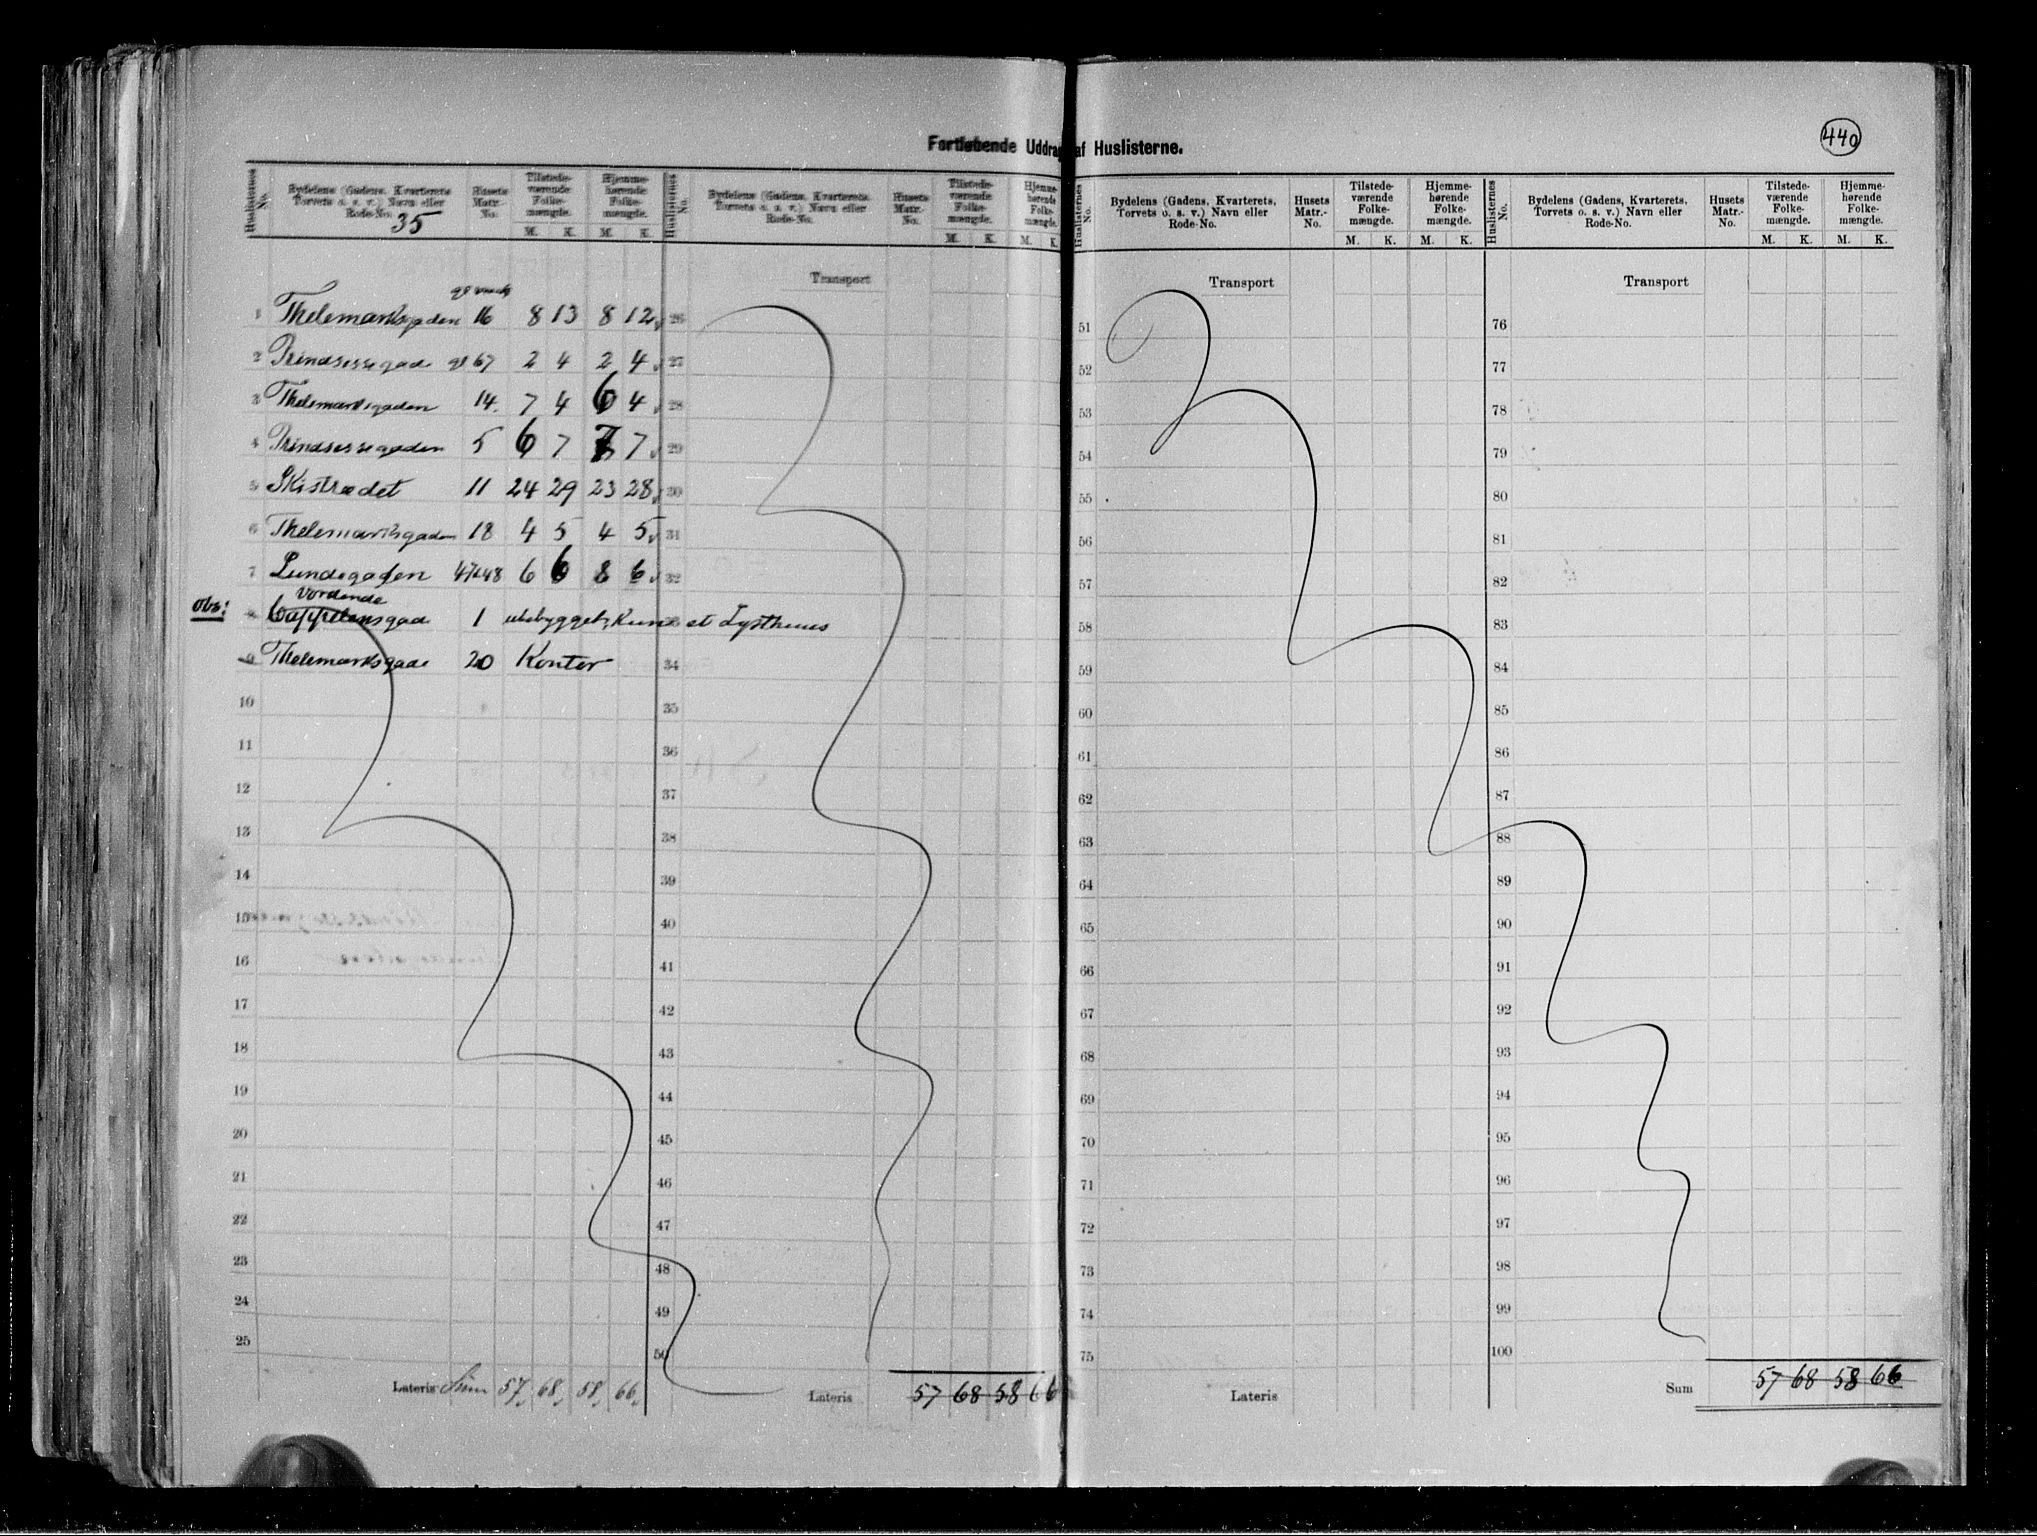 440
Fortløbende Uddrag af Huslisterne.
Huslisternes No. | Bydelens (Gadens, Kvarterets Torvets o. s. v.) Navn eller Rode-No. 35 | Husets Matr.-No. | Tilstede-værende Folke-mængde. M. K. | Hjemme-hørende Folke-mængde. M. K.
Huslisternes No. | Bydelens (Gadens, Kvarterets, Torvets o. s. v.) Navn eller Rode-No. | Husets Matr.-No. | Tilstede-værende Folke-mængde. M. K. | Hjemme-hørende Folke-mængde. M. K.
Huslisternes No. | Bydelens (Gadens, Kvarterets, Torvets o. s. v.) Navn eller Rode-No. | Husets Matr.-No. | Tilstede-værende Folke-mængde. M. K. | Hjemme-hørende Folke-mængde. M. K.
Huslisternes No. | Bydelens (Gadens, Kvarterets, Torvets o. s. v.) Navn eller Rode-No. | Husets Matr.-No. | Tilstede-værende Folke-mængde. M. K. | Hjemme-hørende Folke-mængde. M. K.
1 Thelemarksgaden 16 8 13 8 12
2 Prindsessegade gl 67 2 4 2 4
3 Thelemarksgaden 14. 7 4 6 4
4 Prindsessegaden 5 6 7 7 7
5 Skistrædet 11 24 29 23 28
6 Thelemarksgaden 18 4 5 4 5
7 Lundegaden 47&48 6 6 8 6
vordende
obs: Cappelensgade 1 ubebygget, Kun et Lysthuus
9 Thelemarksgade 20 Konter
10
11
12
13
14
15
16
17
18
19
20
21
22
23
24
25
Lateris Sum 57 68 58 66
Transport
26
27
28
29
30
31
32
34
35
36
37
38
39
40
41
42
43
44
45
46
47
48
49
50
Lateris 57 68 58 66
Transport
51
52
53
54
55
56
57
58
59
60
61
62
63
64
65
66
67
68
69
70
71
72
73
74
75
Lateris
Transport
76
77
78
79
80
81
82
83
84
85
86
87
88
89
90
91
92
93
94
95
96
97
98
99
100
Sum 57 68 58 66